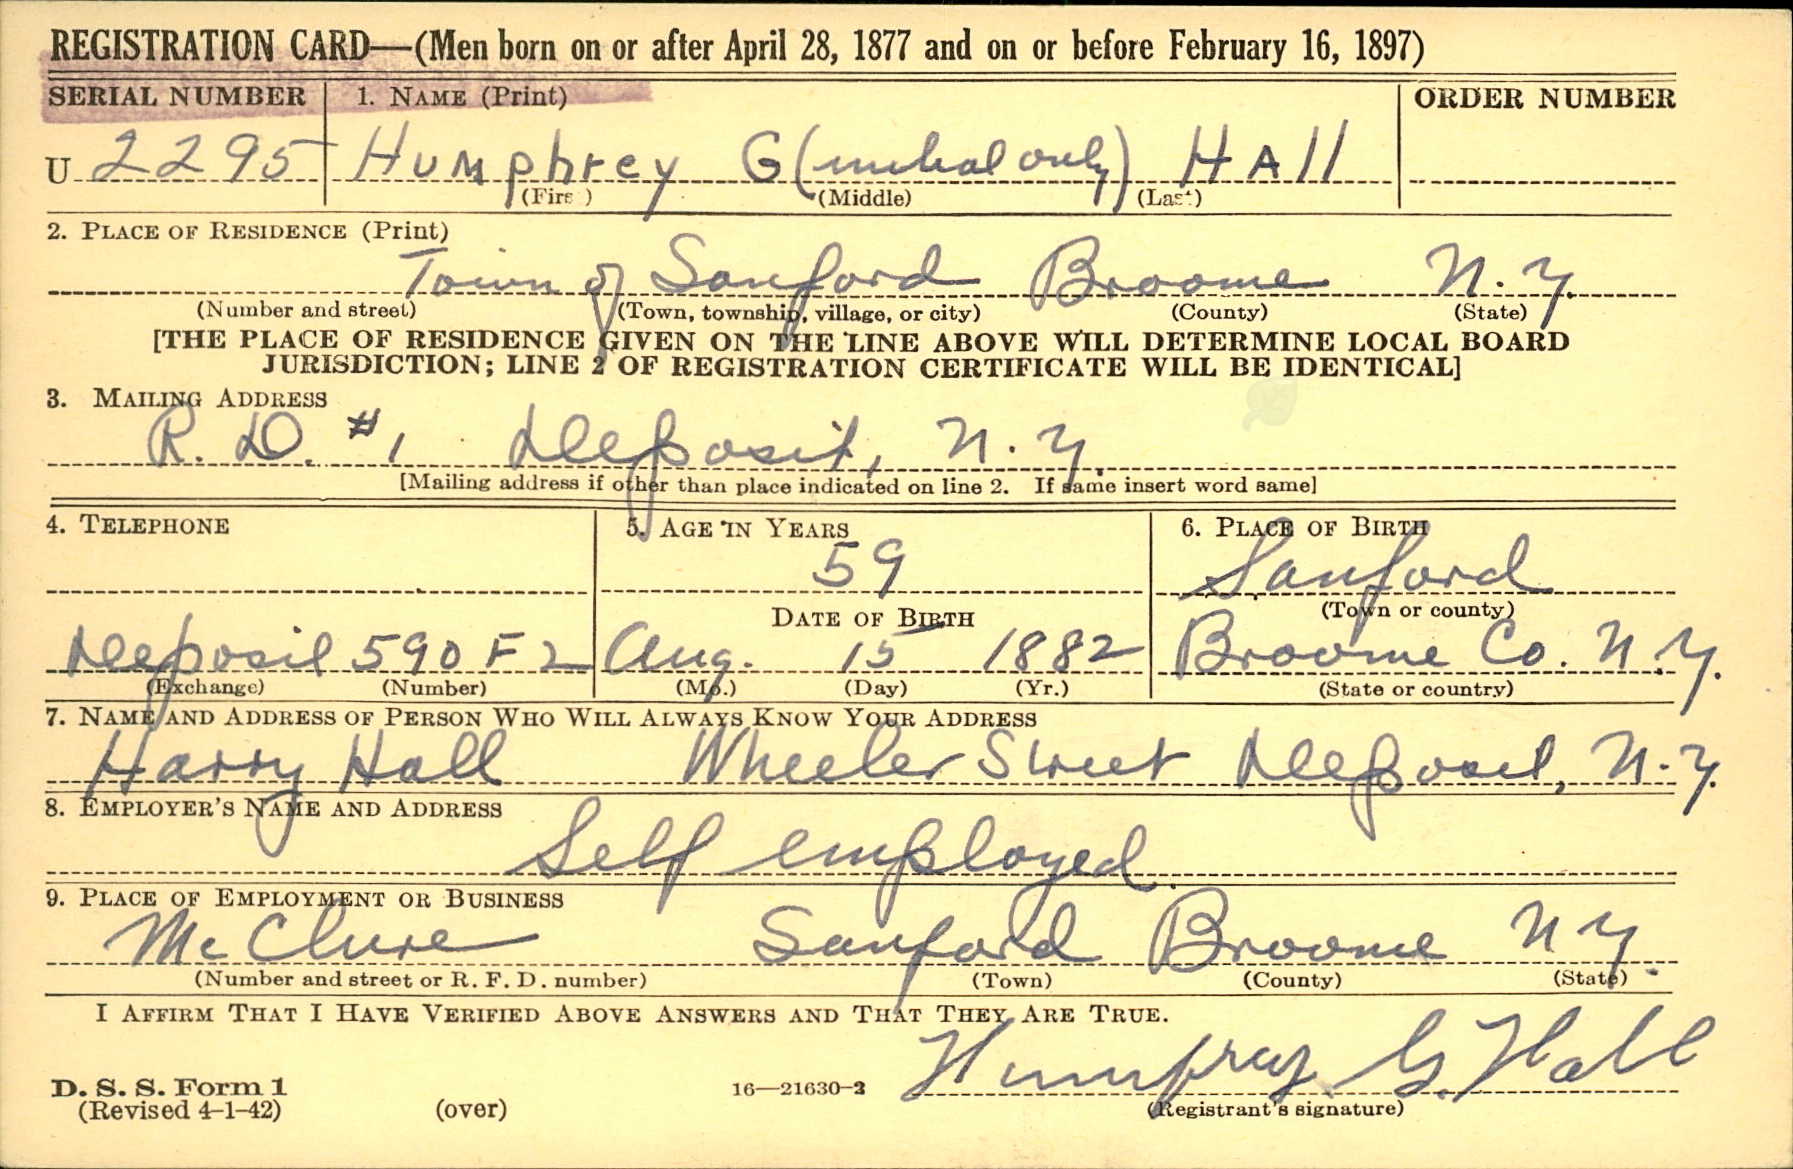 REGISTRATION CARD—(Men born on or after April 28, 1877 and on or before February 16, 1897)
SERIAL NUMBER 1. NAME (Print) ORDER NUMBER
U 2295 Humphrey G (initial only) HAll
(First) (Middle) (Last)
2. PLACE OF RESIDENCE (Print)
Town of Sanford Broome N.Y.
(Number and street) (Town, township, village, or city) (County) (State)
[THE PLACE OF RESIDENCE GIVEN ON THE LINE ABOVE WILL DETERMINE LOCAL BOARD
JURISDICTION; LINE 2 OF REGISTRATION CERTIFICATE WILL BE IDENTICAL]
3. MAILING ADDRESS
R. D. #1 Deposit, N.Y.
[Mailing address if other than place indicated on line 2. If same insert word same]
4. TELEPHONE 5. AGE IN YEARS 6. PLACE OF BIRTH
59 Sanford
DATE OF BIRTH (Town or county)
Deposit 590 F 2 Aug. 15 1882 Broome Co. N.Y.
(Exchange) (Number) (Mo.) (Day) (Yr.) (State or country)
7. NAME AND ADDRESS OF PERSON WHO WILL ALWAYS KNOW YOUR ADDRESS
Harry Hall Wheeler Street Deposit, N.Y.
8. EMPLOYER'S NAME AND ADDRESS
Self employed.
9. PLACE OF EMPLOYMENT OR BUSINESS
McClure Sanford Broome N.Y.
(Number and street or R. F. D. number) (Town) (County) (State)
I AFFIRM THAT I HAVE VERIFIED ABOVE ANSWERS AND THAT THEY ARE TRUE.
Humfrey G. Hall
D. S. S. Form 1 16—21630-2
(Revised 4-1-42) (over) (Registrant's signature)